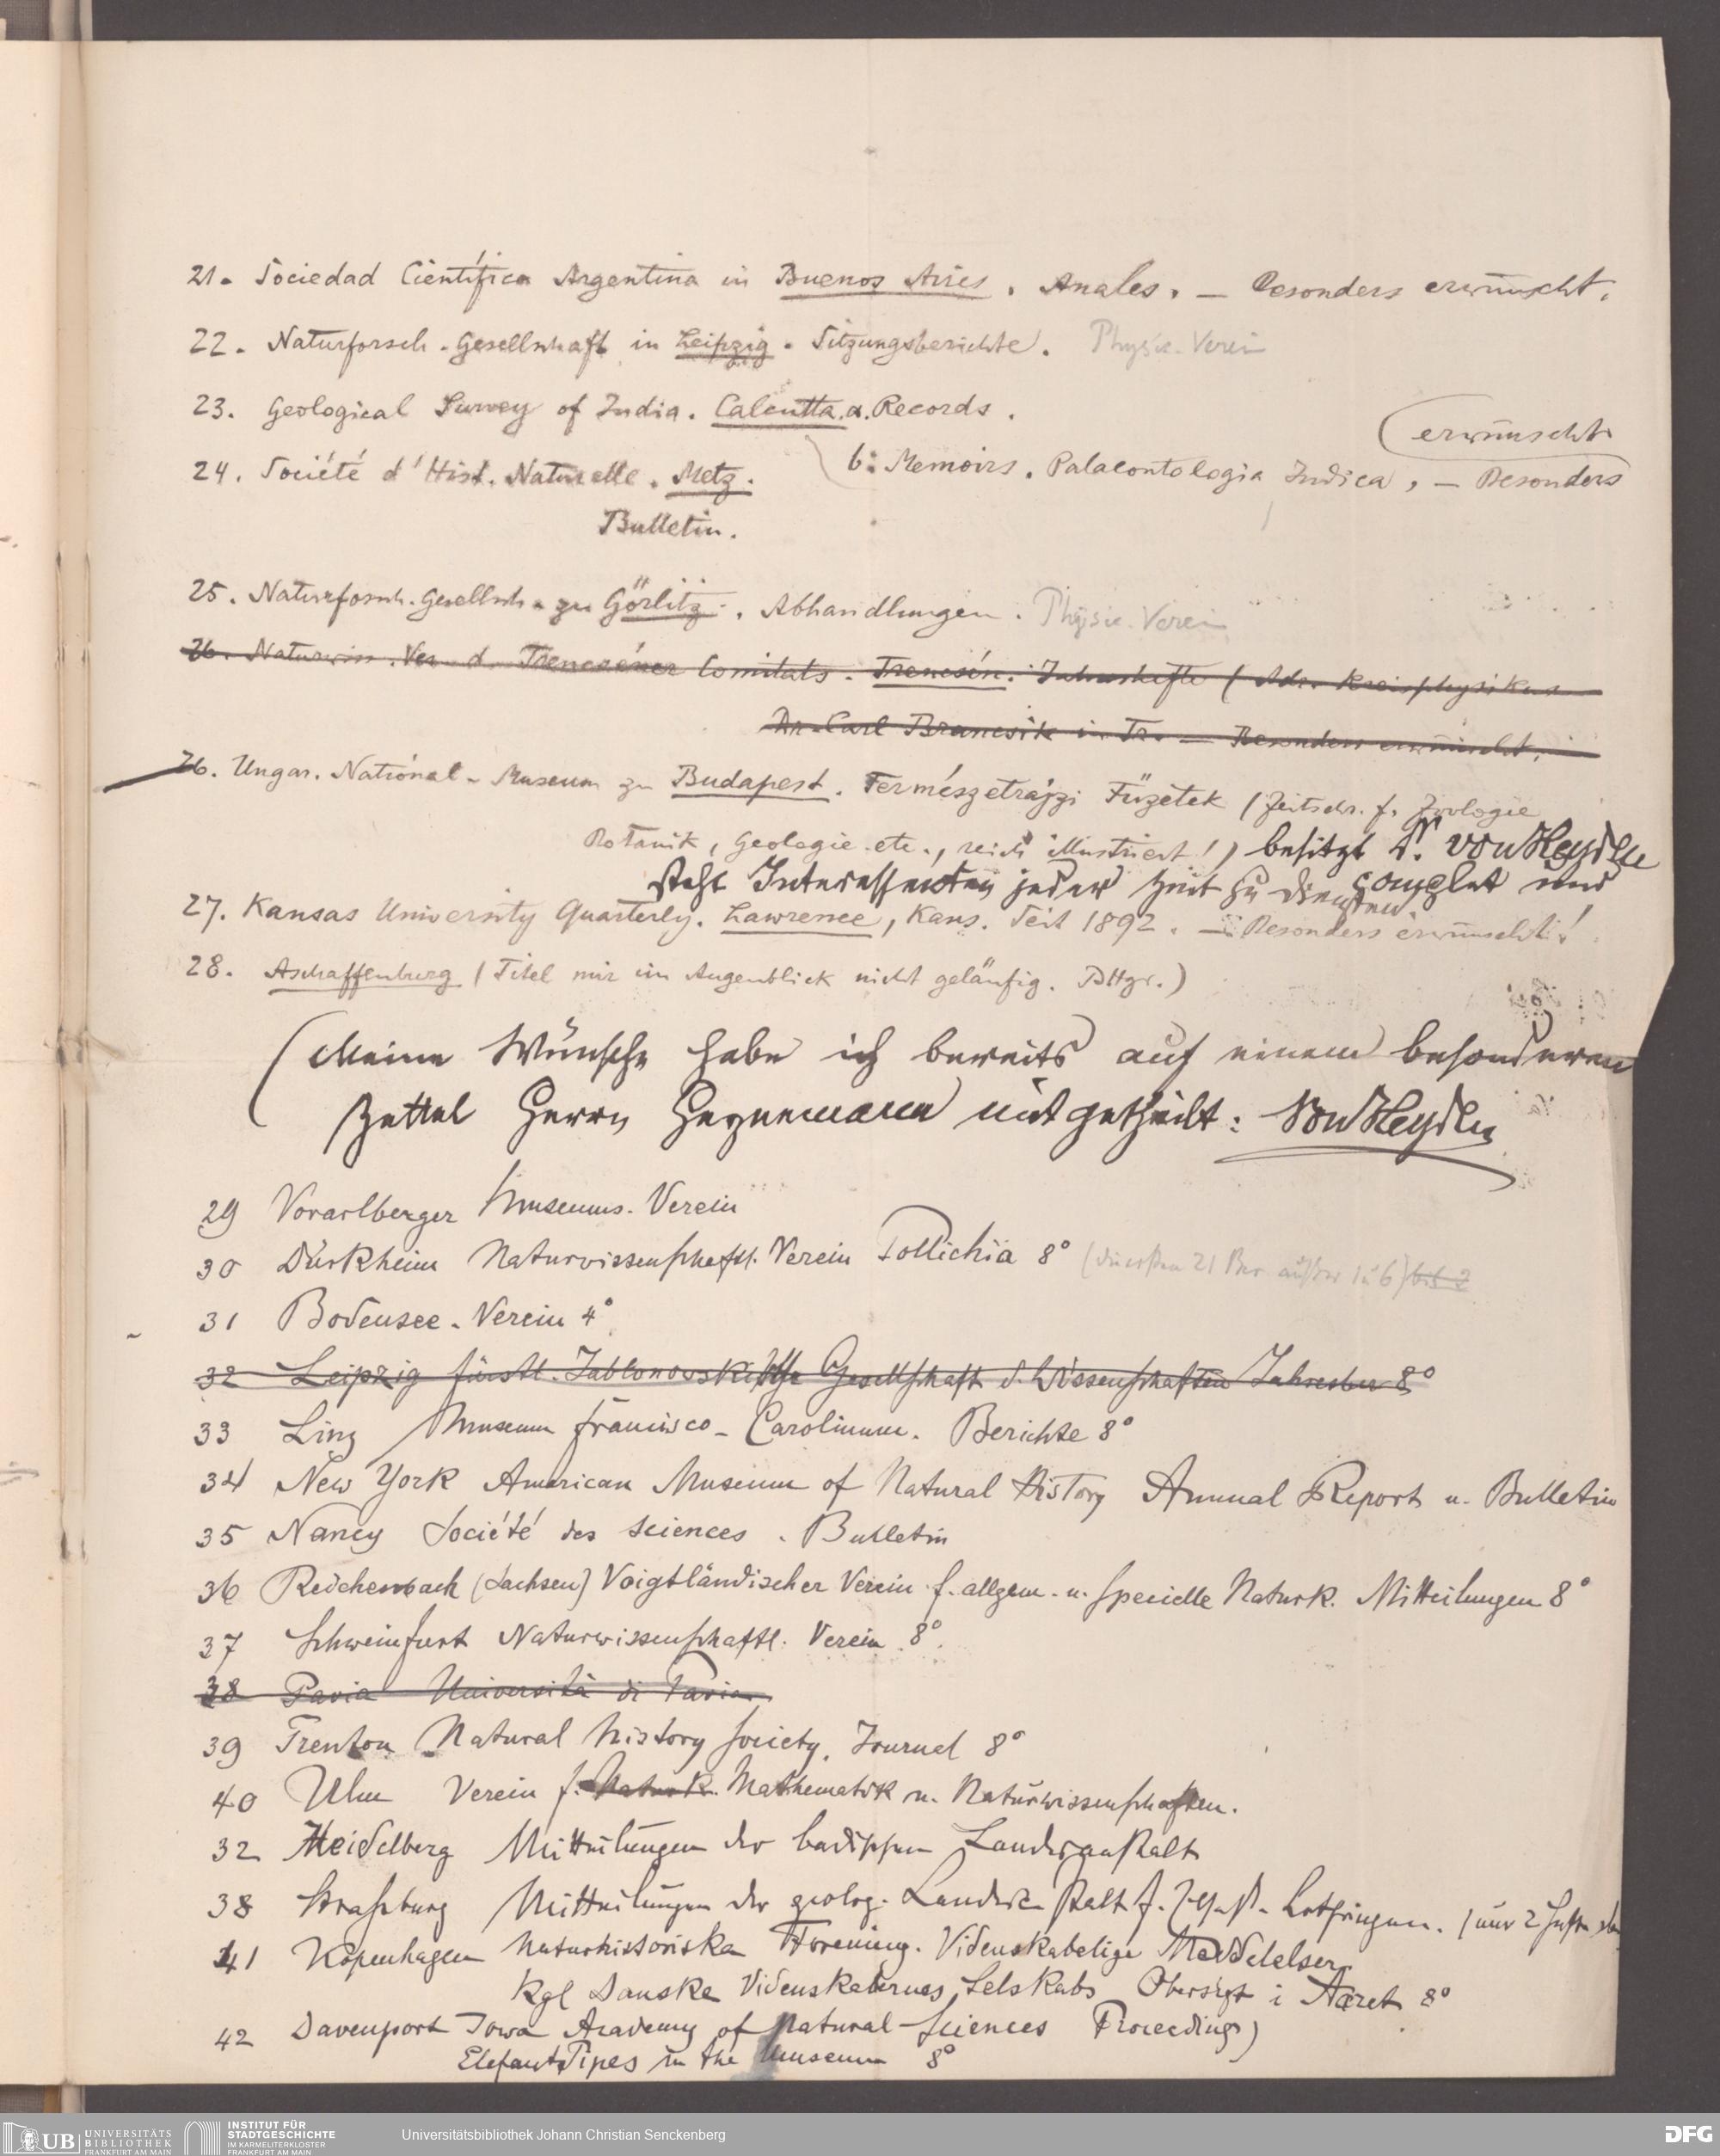 21. Sociedad Científica Argentina in Buenos Aires. Anales. — Besonders erwünscht.
22. Naturforsch. Gesellschaft in Leipzig. Sitzungsberichte. Physic. Verein
23. Geological Survey of India. Calcutta. a. Records.
(erwünscht
b. Memoirs. Palaeontologia Indica, — Besonders
24. Société d'Hist. Naturelle. Metz.
Bulletin.
25. Naturforsch. Gesellsch. zu Görlitz. Abhandlungen. Physic. Verein
26. Naturwiss. Ver. d. Trencséner Comitats. Trencsén. Jahreshefte (Adr. Kreisphysikus
Dr. Carl Brancsik in Tr. — Besonders erwünscht.
26. Ungar. National-Museum zu Budapest. Természetrajzi Füzetek (Zeitschr. f. Zoologie
Botanik, Geologie etc., reich illustriert!) besitzt Dr. von Heyden
complet und
steht Interessenten jeder Zeit zu Diensten
27. Kansas University Quarterly. Lawrence, Kans. Seit 1892. — Besonders erwünscht!
28. Aschaffenburg (Titel mir im Augenblick nicht geläufig. Bttgr.)
(Meine Wünsche habe ich bereits auf einem besonderen
Zettel Herrn Heynemann mitgetheilt: von Heyden
29 Vorarlberger Museums-Verein
30 Dürkheim Naturwissenschaftl. Verein Pollichia 8° (die ersten 21 Ber. außer 1 u 6) bis 2
31 Bodensee-Verein 4°
32 Leipzig fürstl. Jablonowskische Gesellschaft d. Wissenschaften Jahresber 8°
33 Linz Museum Francisco-Carolinum. Berichte 8°
34 New York American Museum of Natural History Annual Report u. Bulletin
35 Nancy Société des sciences. Bulletin
36 Reichenbach (Sachsen) Voigtländischer Verein f. allgem. u. specielle Naturk. Mitteilungen 8°
37 Schweinfurt Naturwissenschaftl. Verein 8°.
38 Pavia Università di Pavia
39 Trenton Natural history society, Journal 8°
40 Ulm Verein f. Naturk. Mathematik u. Naturwissenschaften.
32 Heidelberg Mitteilungen der badischen Landesanstalt
38 Strassburg Mitteilungen der geolog. Landesanstalt f. Lothringen. (nur 2 Hefte
41 Kopenhagen Naturhistoriske Forening. Videnskabelige Meddelelser
Kgl Danske Videnskabernes Selskabs Obersigt i Aaret 8°
42 Davenport Iowa Academy of Natural-Sciences Proceedings)
Elefant Pipes in the Museum 8°
UB UNIVERSITÄTS
BIBLIOTHEK
FRANKFURT AM MAIN
INSTITUT FÜR
STADTGESCHICHTE
IM KARMELITERKLOSTER
FRANKFURT AM MAIN
Universitätsbibliothek Johann Christian Senckenberg
DFG